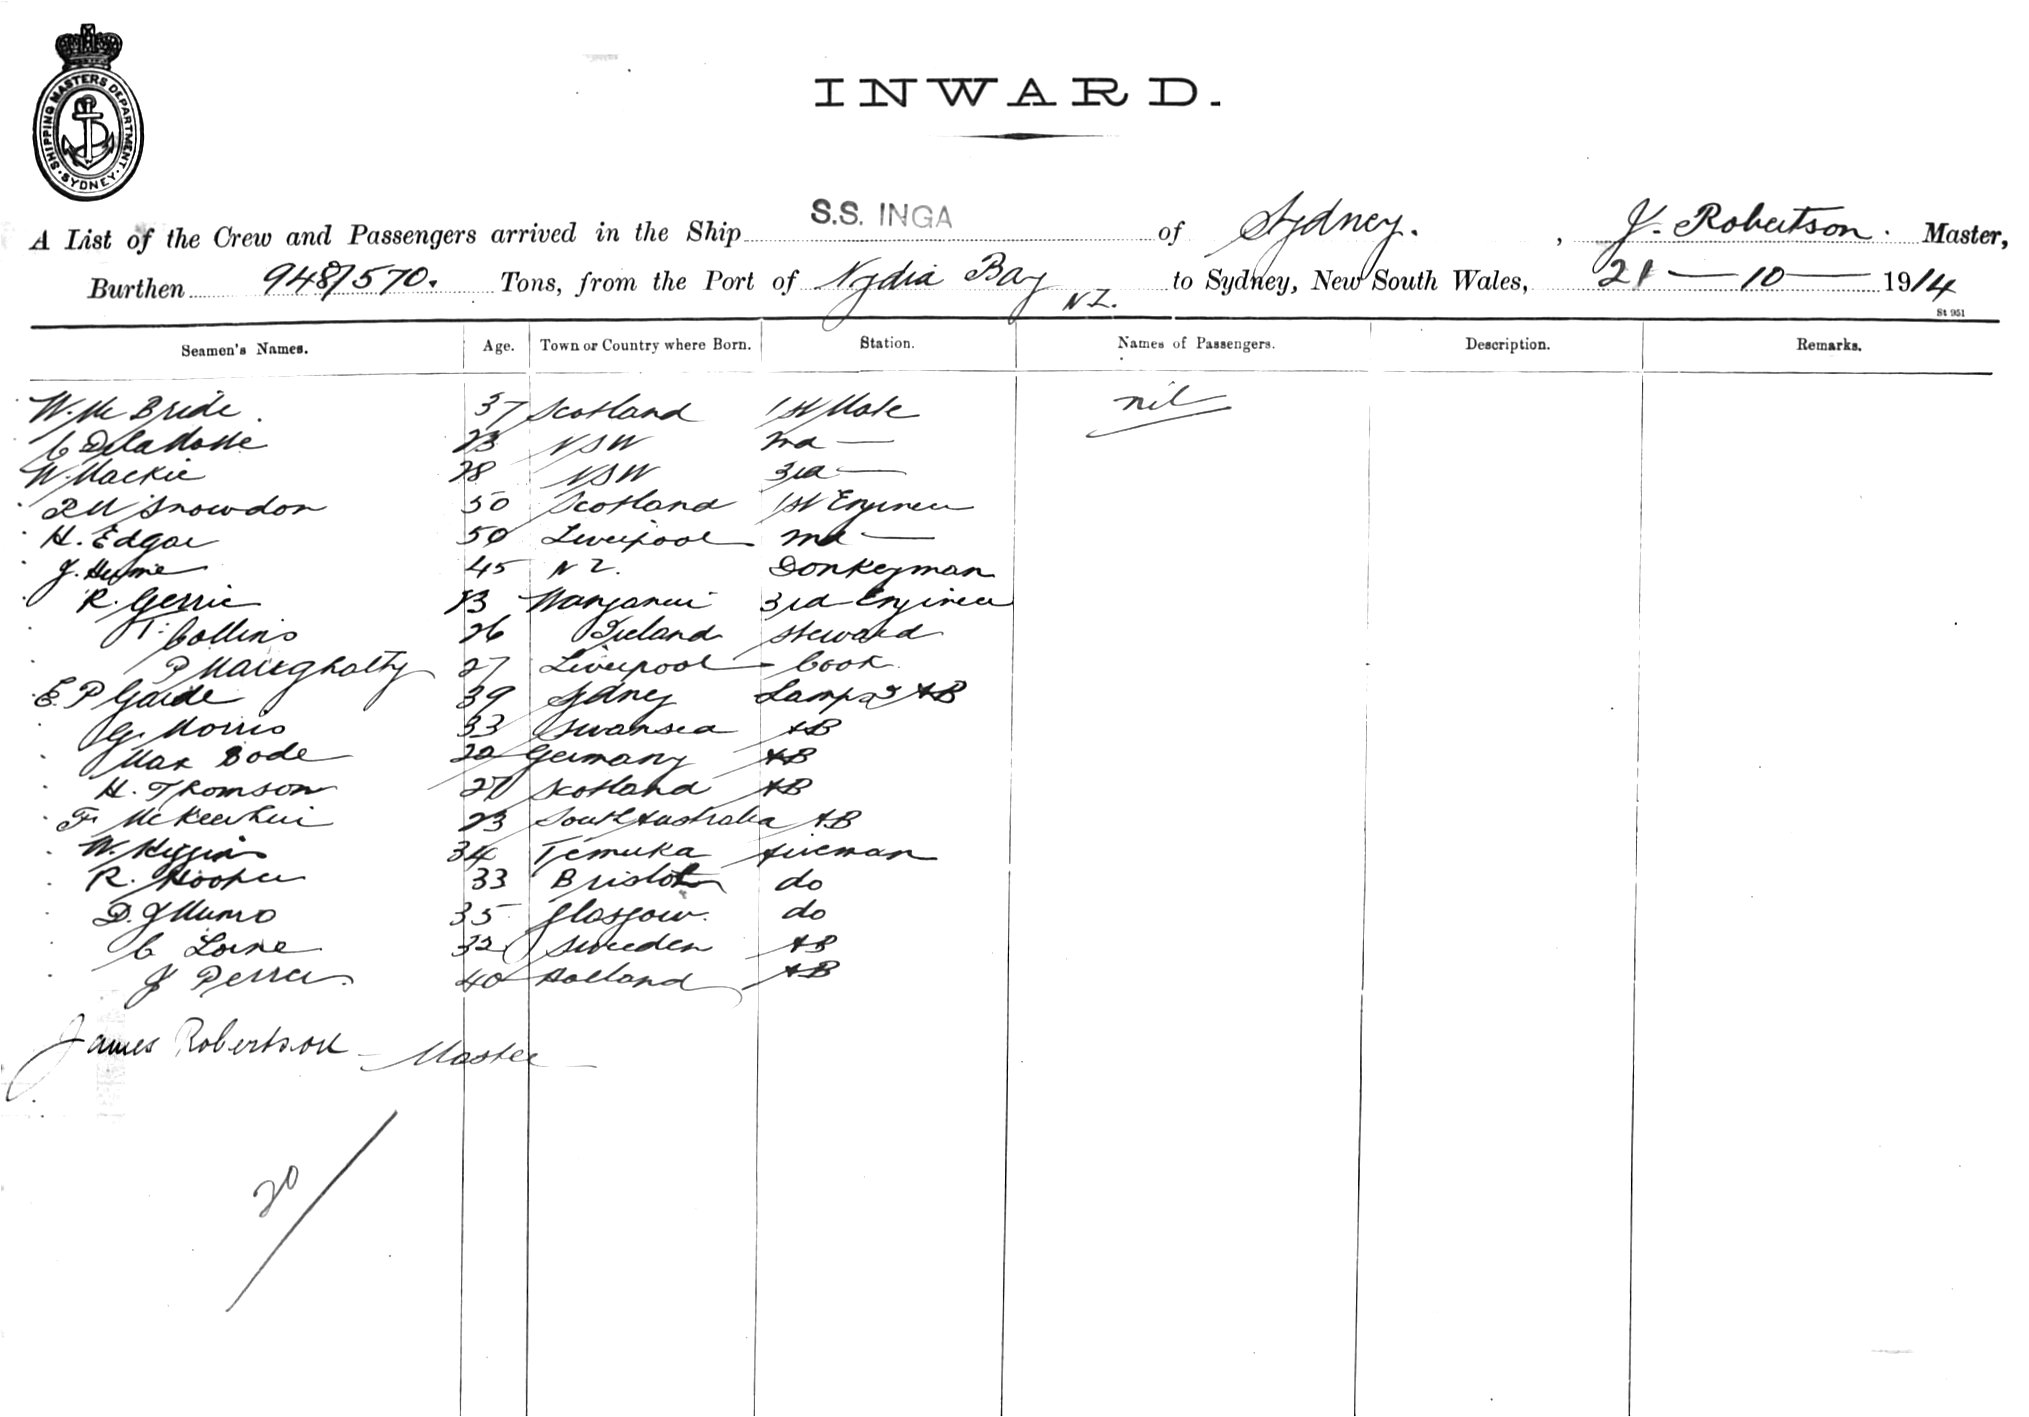 SHIPPING MASTERS DEPARTMENT SYDNEY
INWARD.
A List of the Crew and Passengers arrived in the Ship S.S. INGA of Sydney. , J. Robertson. Master,
Burthen 948/570. Tons, from the Port of Nydia Bay N Z. to Sydney, New South Wales, 21 — 10 — 1914
St 951
Seamen's Names. Age. Town or Country where Born. Station. Names of Passengers. Description. Remarks.
W. Mc Bride 37 Scotland 1st Mate nil
C 23 NSW 2nd —
W. Mackie 28 NSW 3rd —
Snowdon 50 Scotland 1st Engineer
H. Edgar 50 Liverpool 2nd —
J. Hume 45 N Z. Donkeyman
R. Gerrie 23 Wanganui 3rd Engineer
T. Collins 26 Ireland Steward
P 27 Liverpool Cook
E. P 39 Sydney Lamps & AB
G. Morris 33 Swansea AB
Max Bode 20 Germany AB
H. Thomson 27 Scotland AB
F. 23 South Australia AB
W. Higgins 34 Temuka Fireman
R. Hooper 33 Bristol do
D. J Munro 35 Glasgow. do
C Lorne 32 Sweden AB
J 40 Holland AB
James Robertson Master
20